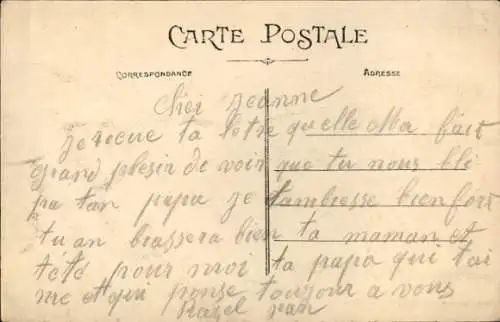 CARTE POSTALE
CORRESPONDANCE
ADRESSE
Cher Jeanne
je recue ta letre quelle Ma fait
grand plesir de voir que tu nous bli
pa tan papa je tambresse bien fort
tu an brassera bien ta maman et
téte pour moi ta papa qui tai
me et qui panse toujour a vous